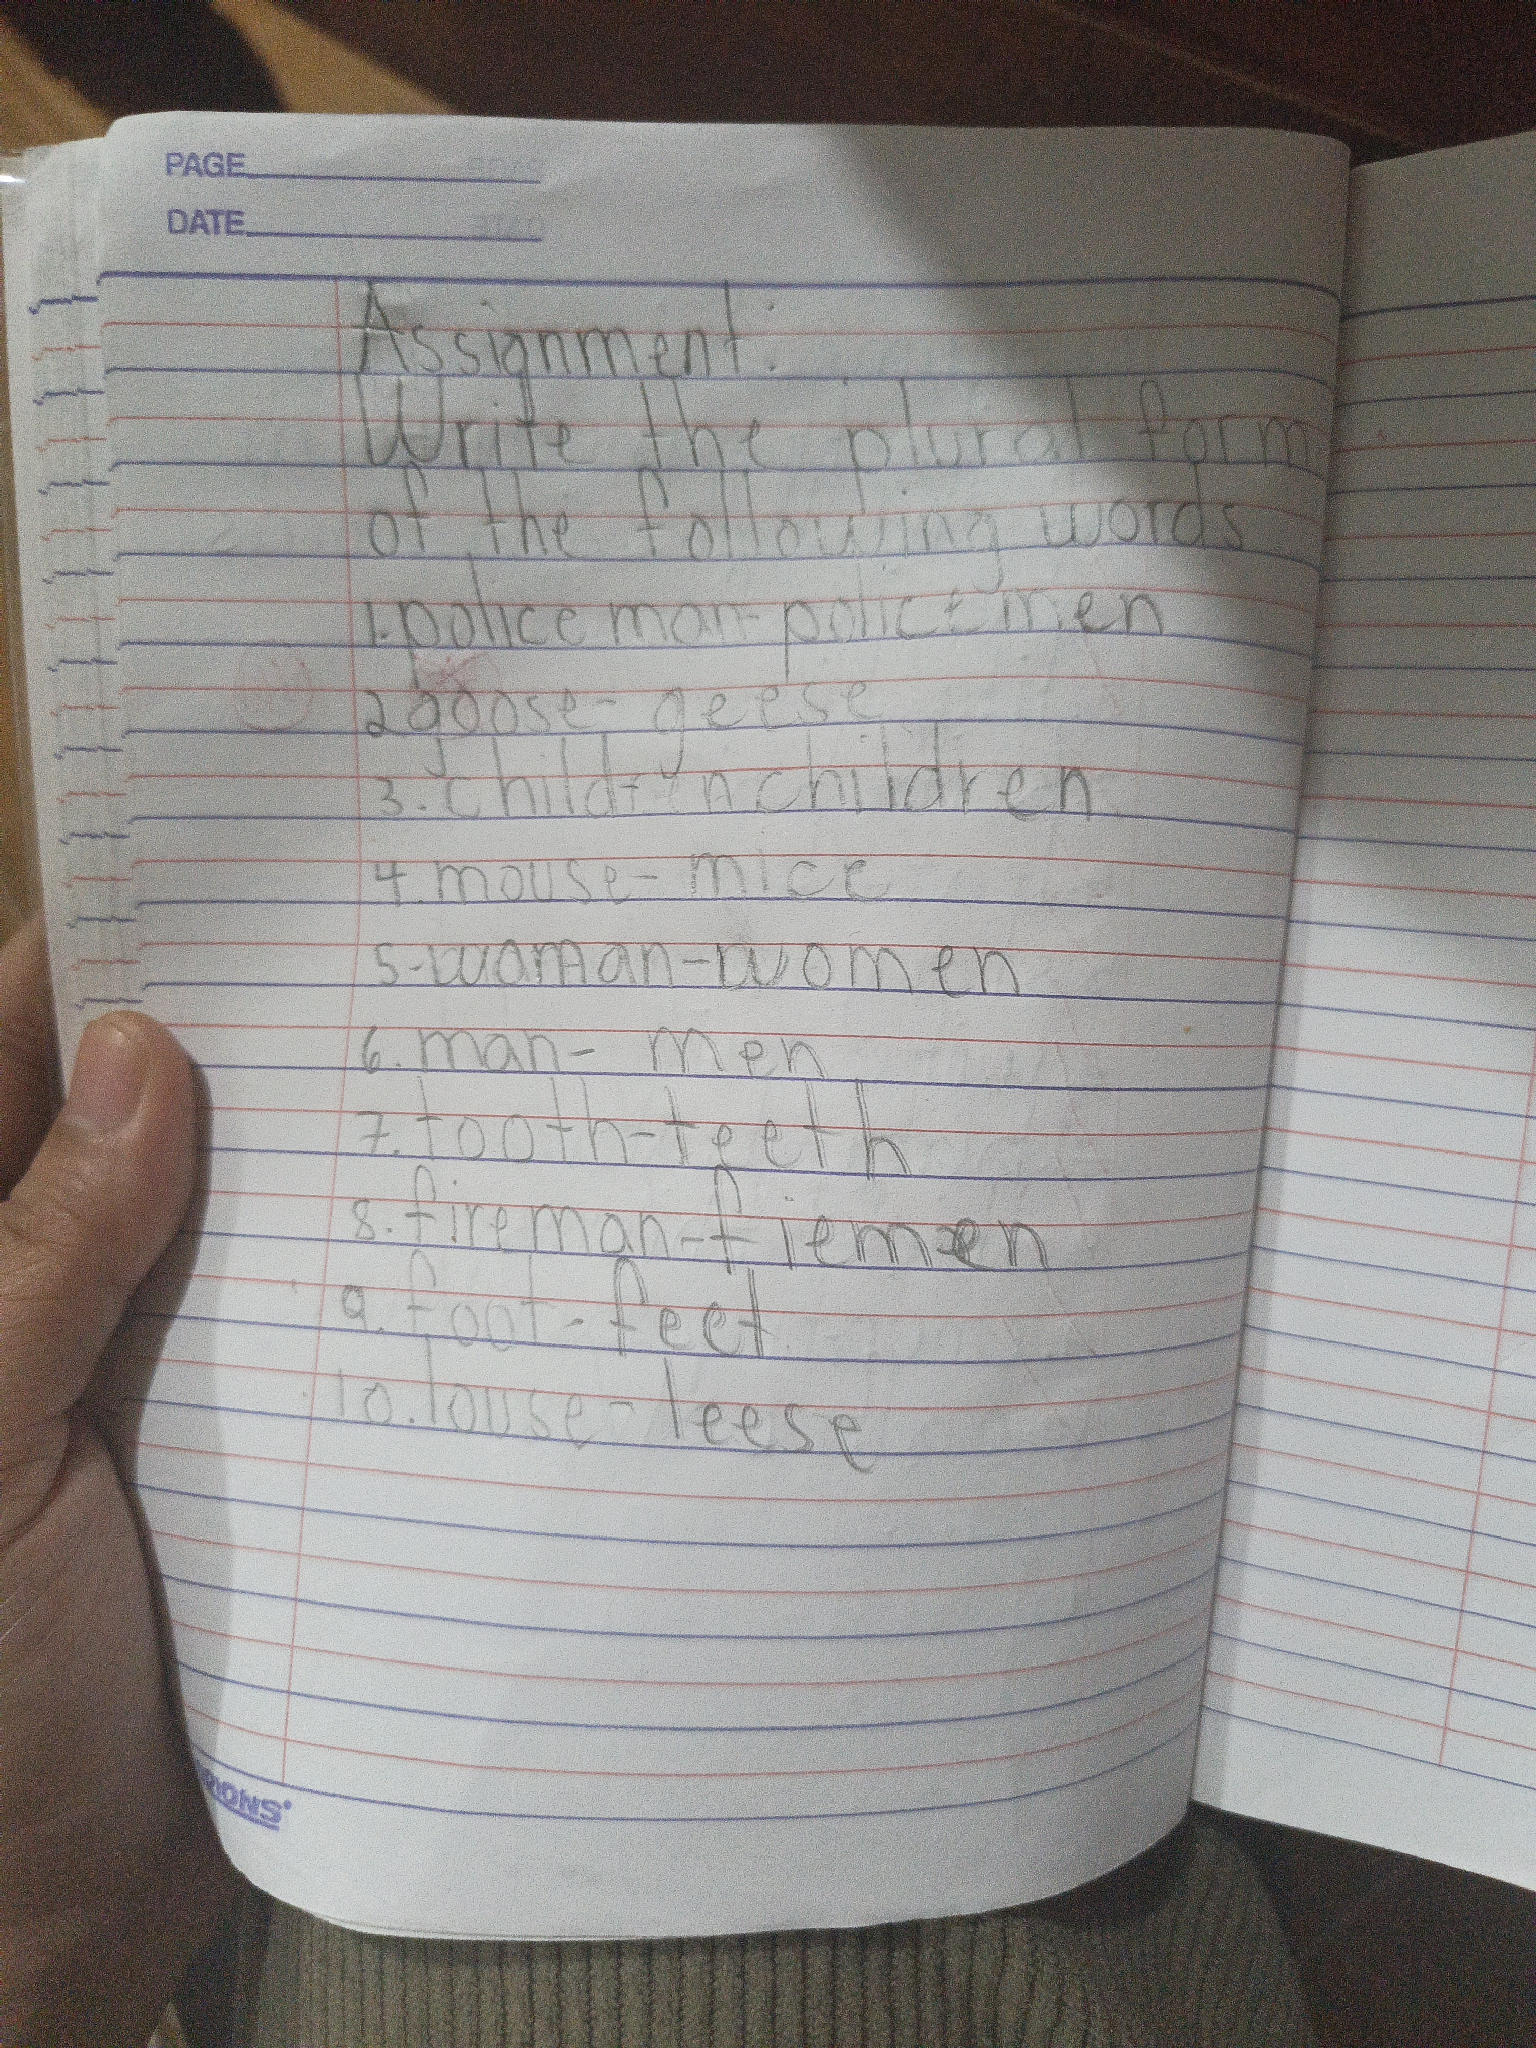 PAGE
DATE
Assignment:
Write the plural form
of the following words
1. policeman- policemen
2 goose- geese
3. children children
4. mouse- mice
5-woman-women
6. man- men
7. tooth-teeth
8. fireman-fiemen
9. foot-feet
10. louse-leese